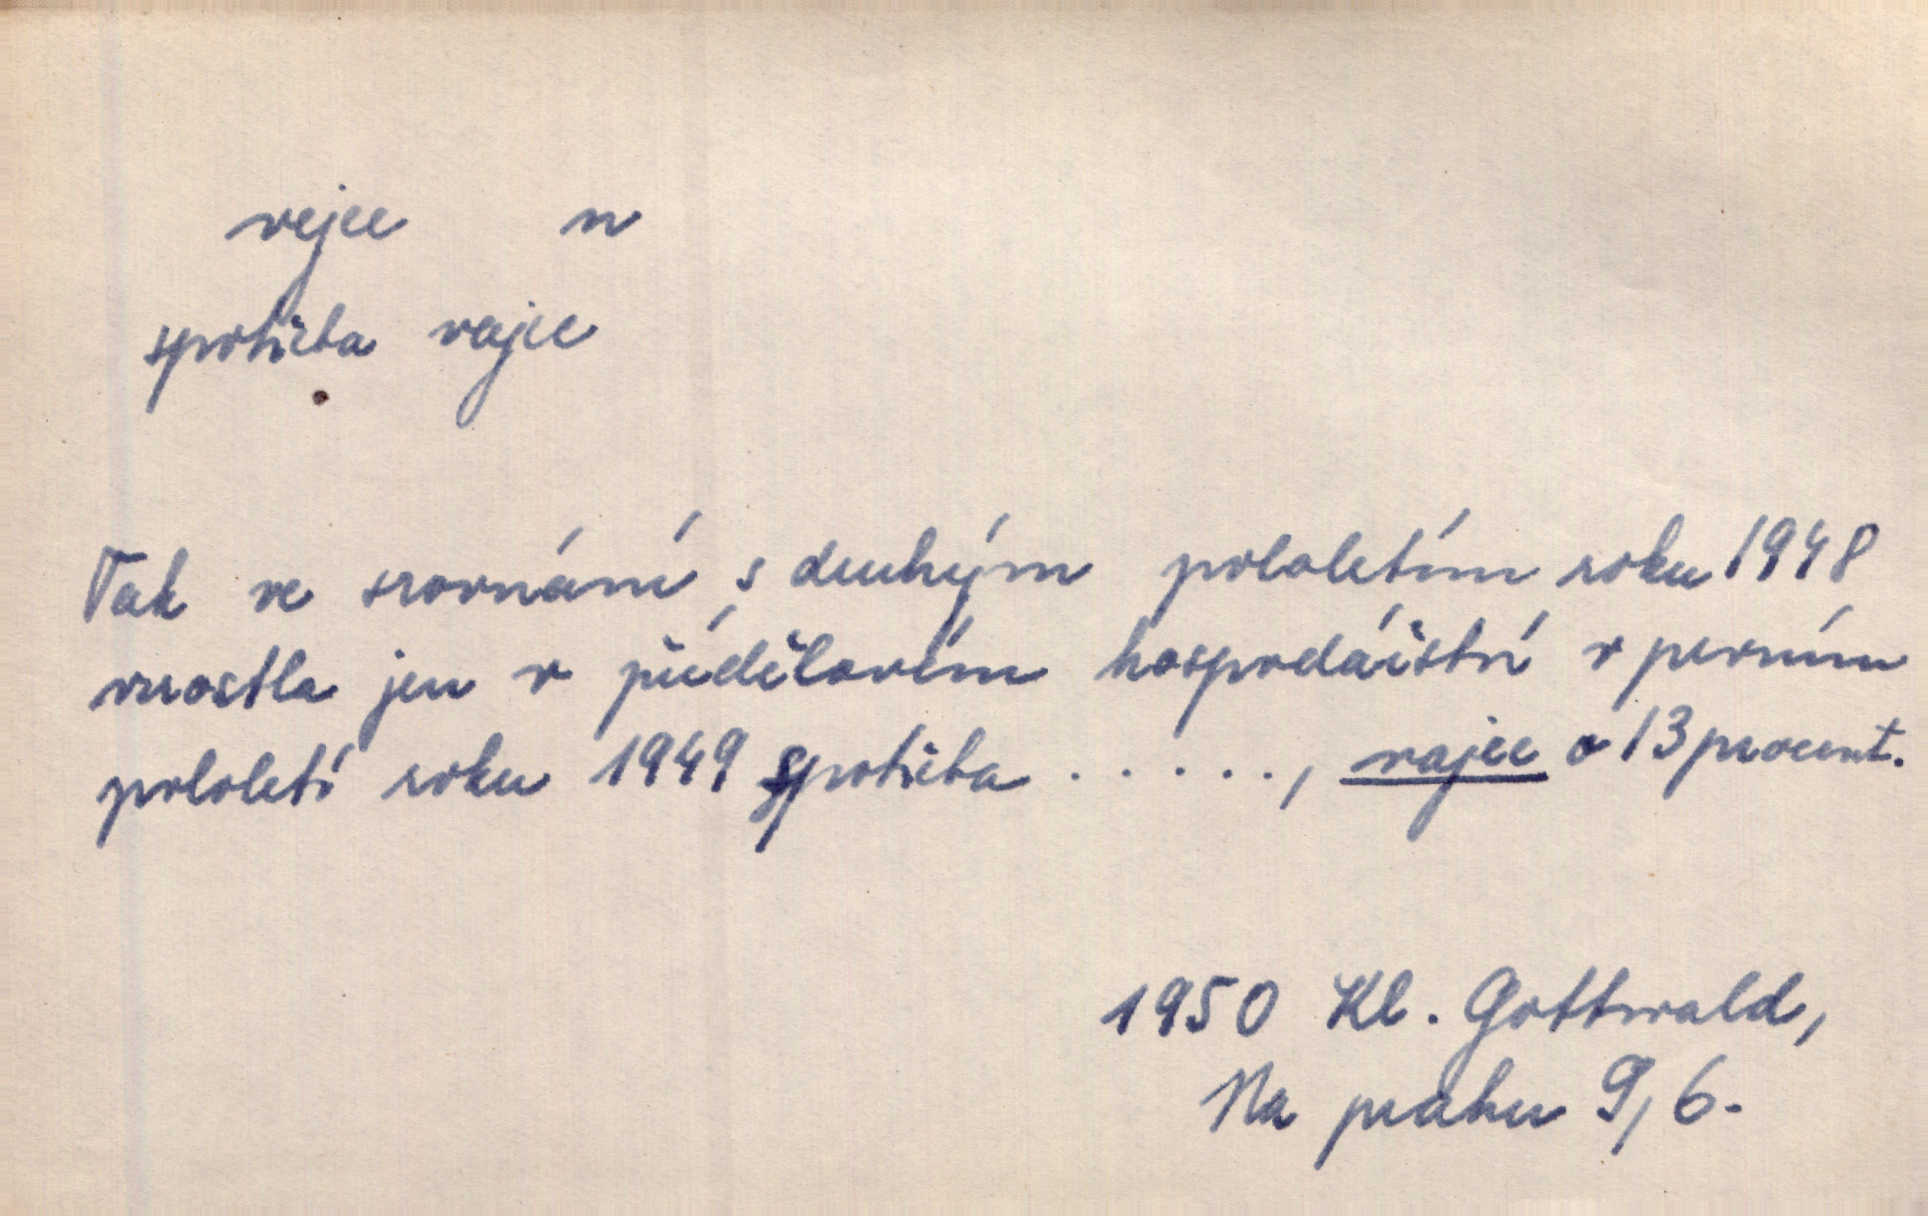 vejce n
spotřeba vajec
Tak ve srovnání s druhým pololetím roku 1948
vzrostla jen v přídělovém hospodářství v prvním
pololetí roku 1949 spotřeba . . . . . ., vajec o 13 procent.
1950 Kl. Gottwald,
Na prahu 9, 6.